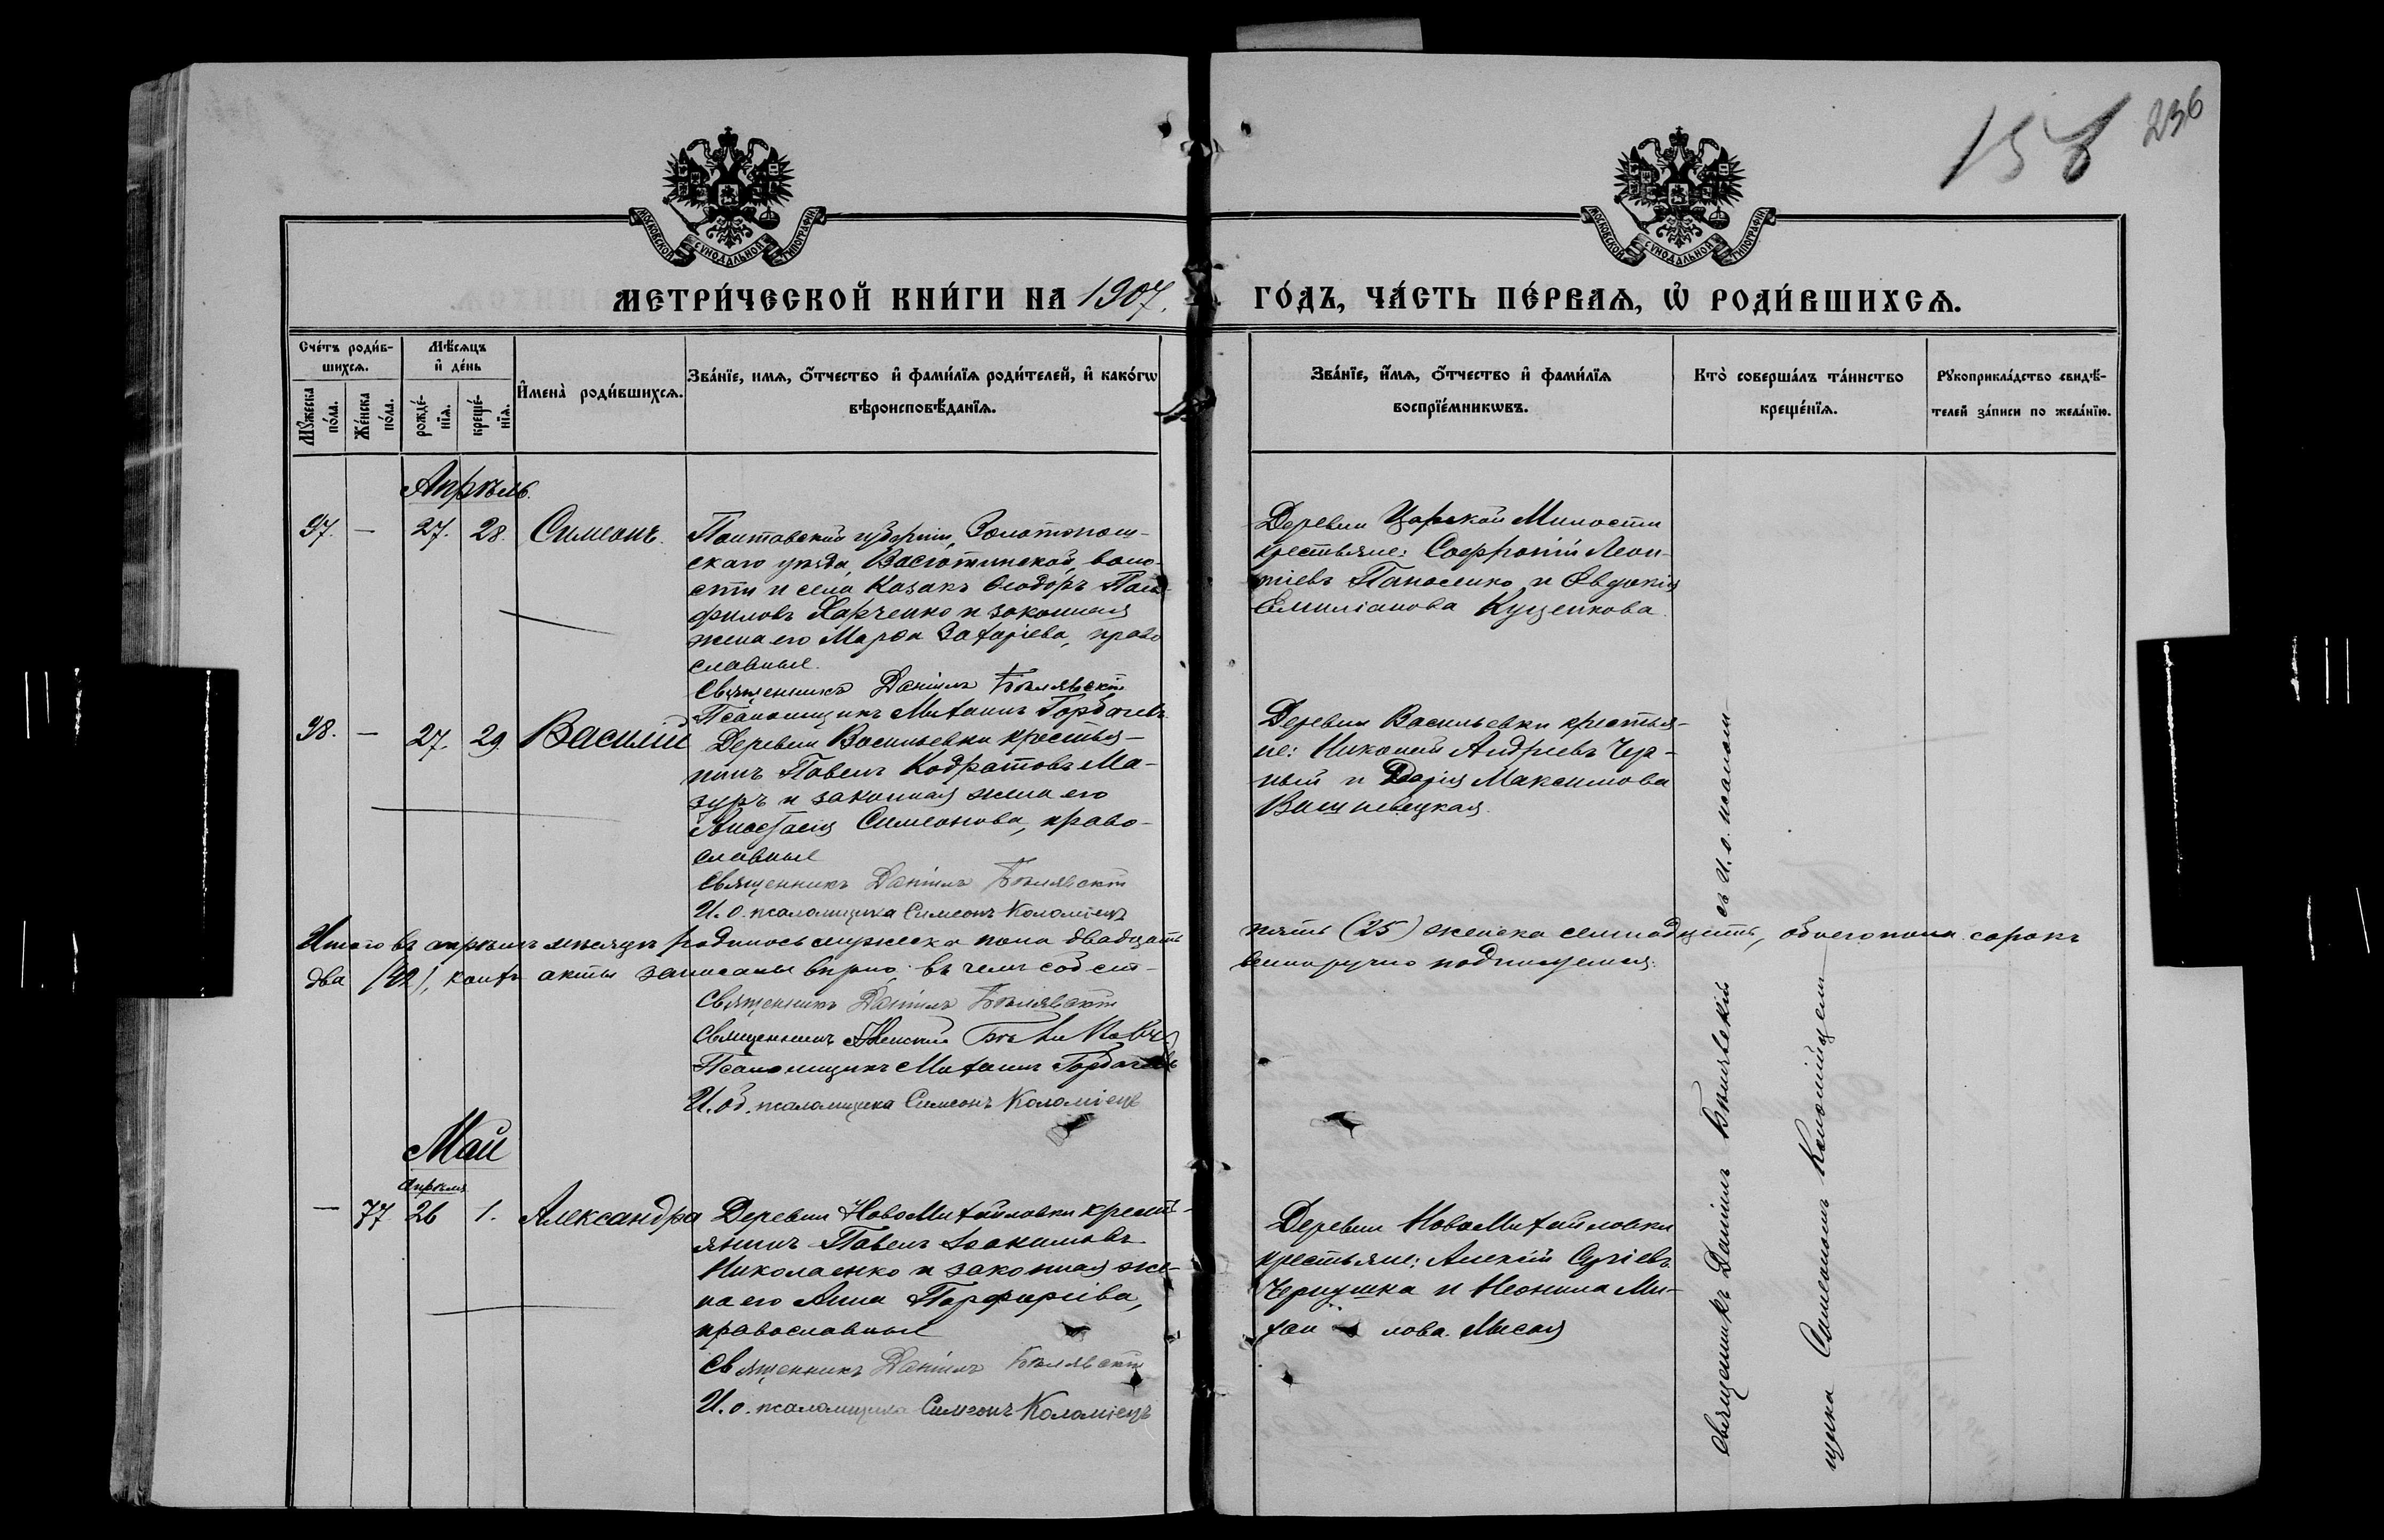 158 236
МОСКОВСКОЙ СУНОДАЛЬНОЙ ТИПОГРАФІИ
МОСКОВСКОЙ СУНОДАЛЬНОЙ ТИПОГРАФІИ
МЕТРИ́ЧЕСКОЙ КНИ́ГИ НА 1907. ГО́ДЪ, ЧА́СТЬ ПЕ́РВАѦ, Ѡ҆ РОДИ́ВШИХСѦ.
Сче́тъ роди́в-
шихсѧ.
Мꙋ́жеска по́ла.
Же́нска по́ла.
Мѣ́сѧцъ
и҆ де́нь
рожде́-
нїѧ.
креще́-
нїѧ.
И҆мена̀ роди́вшихсѧ.
Зва́нїе, имѧ, ѻ҆́тчество и҆ фами́лїѧ роди́телей, и҆ како́гѡ
вѣроисповѣ́данїѧ.
Зва́нїе, и҆́мѧ, ѻ҆́тчество и҆ фами́лїѧ
воспрїе́мникѡвъ.
Кто̀ соверша́лъ та́инство
креще́нїѧ.
Рꙋкоприкла́дство свидѣ́-
телей за́писи по жела́нїю.
Апрѣль.
97. — 27. 28. Симеонъ.
Полтавской губерніи, Золотонош-
скаго уѣзда, Васютинской, воло-
сти и села Казакъ Ѳеодоръ Пам-
филовъ Харченко и законная
жена его Марѳа Захаріева, право
славные.
Священникъ Даніилъ Бѣлявскій
Псаломщикъ Михаилъ Горбачевъ
Деревни Царской Милости
крестьяне: Софроній Леон-
тіевъ Панасенко и Евдокія
Емиліанова Куценкова.
98. — 27. 29. Василій
Деревни Васильевки крестья-
нинъ Павелъ Кодратовъ Ма-
зуръ и законная жена его
Анастасія Симеонова, право-
славные
Священникъ Даніилъ Бѣлявскій
И. о. псаломщика Симеонъ Коломіецъ
Деревни Васильевки крестья-
не: Николай Андреевъ Чер-
ный и Дарія Максимова
Вишневецкая.
Итого въ апрѣлѣ мѣсяцѣ родилось мужеска пола двадцать пять (25) женска семнадцать, обоего пола сорокъ
два (42), коихъ акты записаны вѣрно въ чемъ собст- венноручно подписуемся:
Священникъ Даніилъ Бѣлявскій
Священникъ
Псаломщикъ Михаилъ Горбачевъ
И. об. псаломщика Симеонъ Коломіецъ
Май
апрѣля
— 77 26 1. Александра
Деревни НовоМихайловки кресть-
янинъ Павелъ Іоакимовъ
Николаенко и законная же-
на его Анна Порфиріева,
православные
Священникъ Даніилъ Бѣлявскій
И. о. псаломщика Симеонъ Коломіецъ
Деревни НовоМихайловки
крестьяне: Алексій Сергіевъ
Чернушка и Неонила Ми-
хаи лова. Лысая
Священникъ Даніилъ Бѣлявскій съ И. о. псалом
щика Симеономъ Коломійцемъ